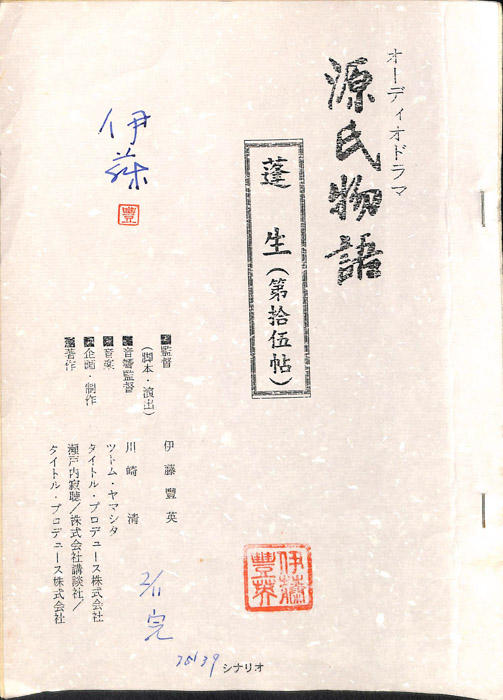 オーディオドラマ
源氏物語
蓬生(第拾伍帖)
伊藤
豊
監督 伊藤豐英
(脚本・演出)
音響監督 川崎清
音楽 ツトム・ヤマシタ
企画・制作 タイトル・プロデュース株式会社
著作 瀬戸内寂聴/株式会社講談社/
タイトル・プロデュース株式会社
伊藤豐英
2/11 完
シナリオ